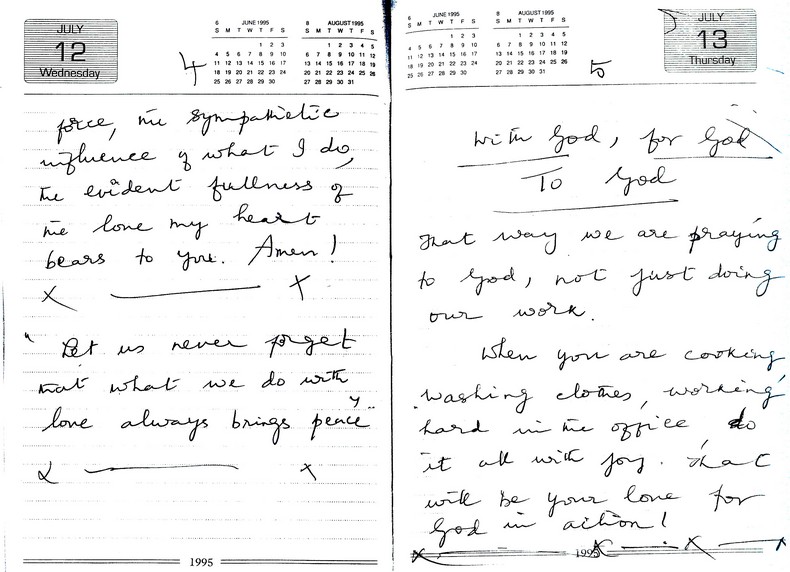 JULY
12
Wednesday
6 JUNE 1995
S M T W T F S
1 2 3
4 5 6 7 8 9 10
11 12 13 14 15 16 17
18 19 20 21 22 23 24
25 26 27 28 29 30
8 AUGUST 1995
S M T W T F S
1 2 3 4 5
6 7 8 9 10 11 12
13 14 15 16 17 18 19
20 21 22 23 24 25 26
27 28 29 30 31
4
force, the sympathetic
influence of what I do,
the evident fullness of
the love my heart
bears to you. Amen!
X X
"Let us never forget
that what we do with
love always brings peace"
X
1995
6 JUNE 1995
S M T W T F S
1 2 3
4 5 6 7 8 9 10
11 12 13 14 15 16 17
18 19 20 21 22 23 24
25 26 27 28 29 30
8 AUGUST 1995
S M T W T F S
1 2 3 4 5
6 7 8 9 10 11 12
13 14 15 16 17 18 19
20 21 22 23 24 25 26
27 28 29 30 31
5
JULY
13
Thursday
With God, for God
To God
That way we are praying
to God, not just doing
our work.
When you are cooking
washing clothes, working
hard in the office, do
it all with joy. That
will be your love for
God in action!
1995